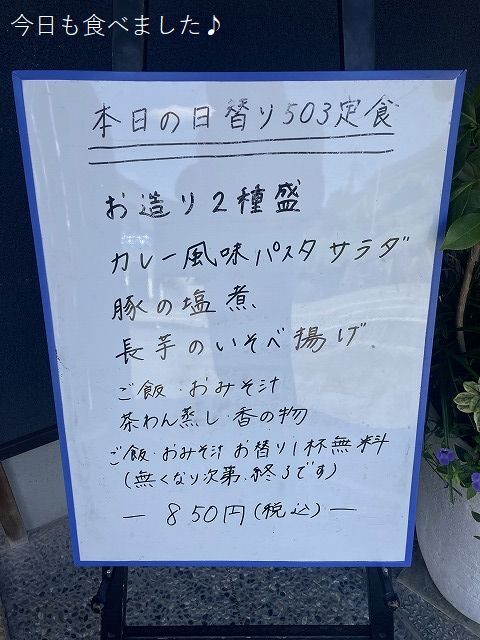 今日も食べました♪
本日の日替り503定食
お造り2種盛
カレー風味パスタサラダ
豚の塩煮
長芋のいそべ揚げ
ご飯・おみそ汁
茶わん蒸し・香の物
ご飯・おみそ汁お替り1杯無料
(無くなり次第、終了です)
— 850円(税込) —